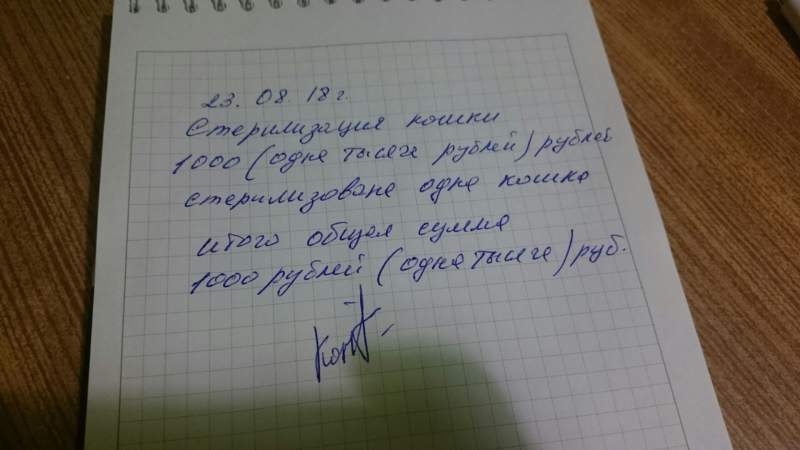 23. 08 18 г.
Стерилизация кошки
1000 (одна тысяча рублей) рублей
стерилизована одна кошка
итого общая сумма
1000 рублей (одна тысяча) руб.